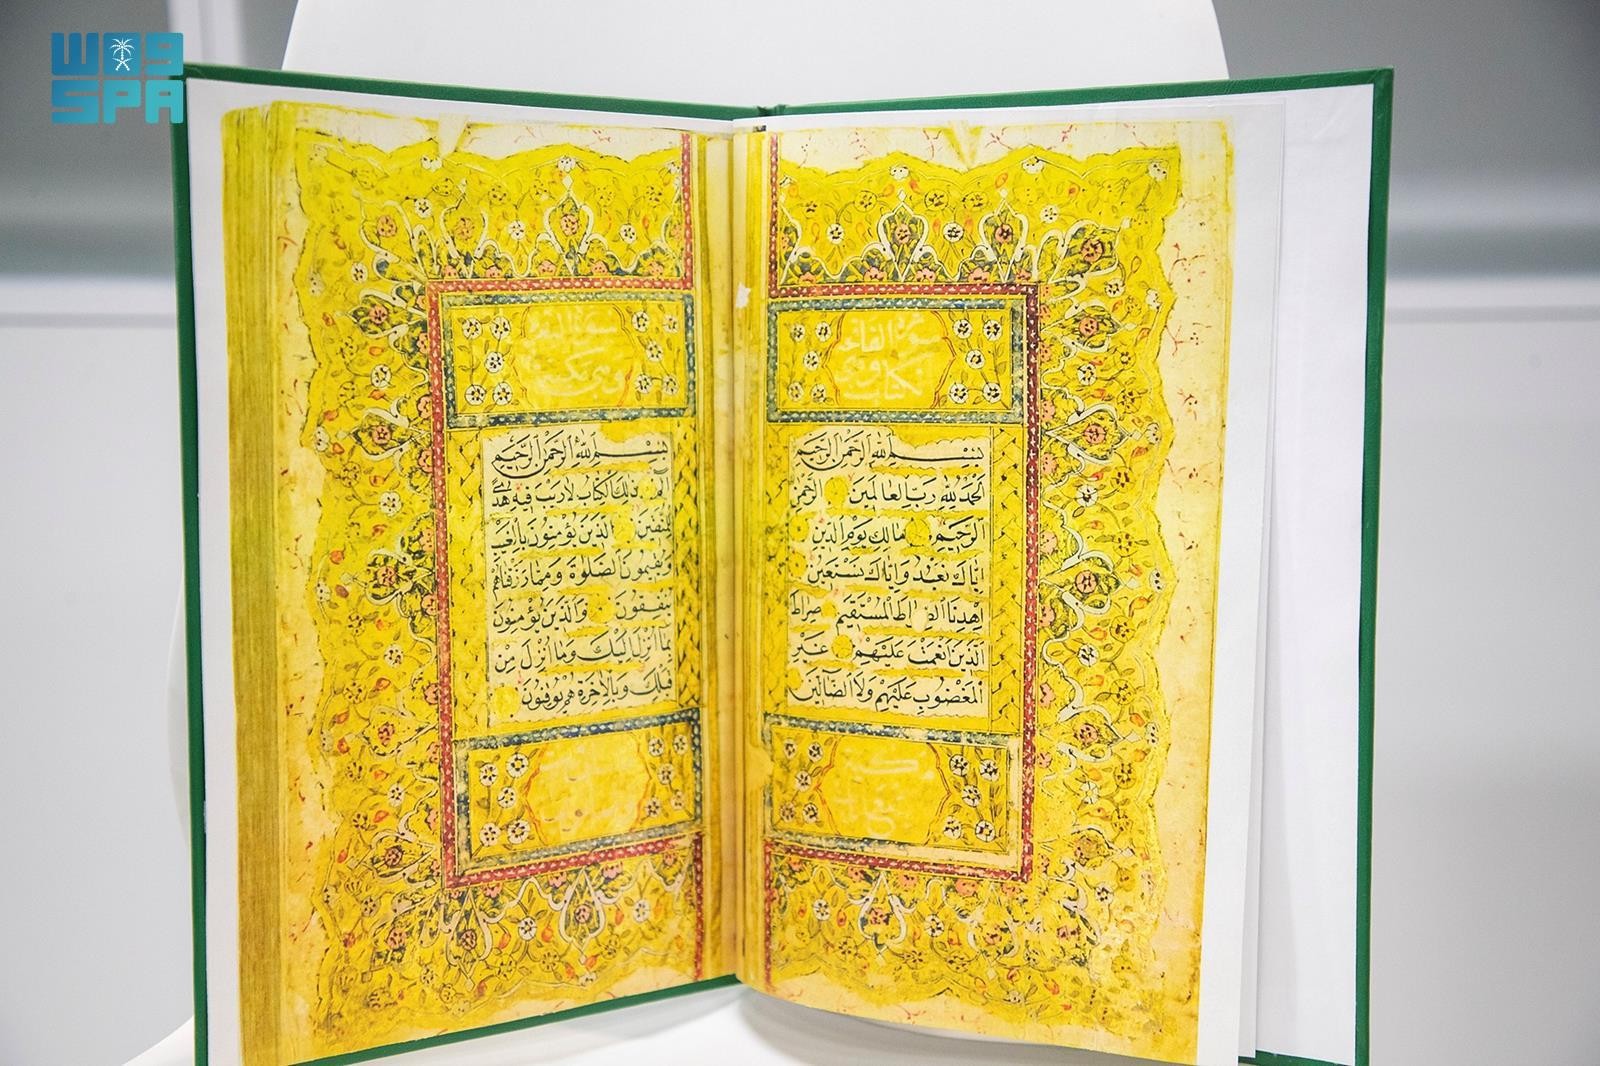 واس
SPA
سورة الفاتحة
بسم الله الرحمن الرحيم
الحمد لله رب العالمين الرحمن
الرحيم مالك يوم الدين
اياك نعبد واياك نستعين
اهدنا الصراط المستقيم صراط
الذين انعمت عليهم غير
المغضوب عليهم ولا الضالين
سورة البقرة
بسم الله الرحمن الرحيم
الم ذلك الكتاب لا ريب فيه هدى
للمتقين الذين يؤمنون بالغيب
ويقيمون الصلوة ومما رزقناهم
ينفقون والذين يؤمنون
بما انزل اليك وما انزل من
قبلك وبالاخرة هم يوقنون